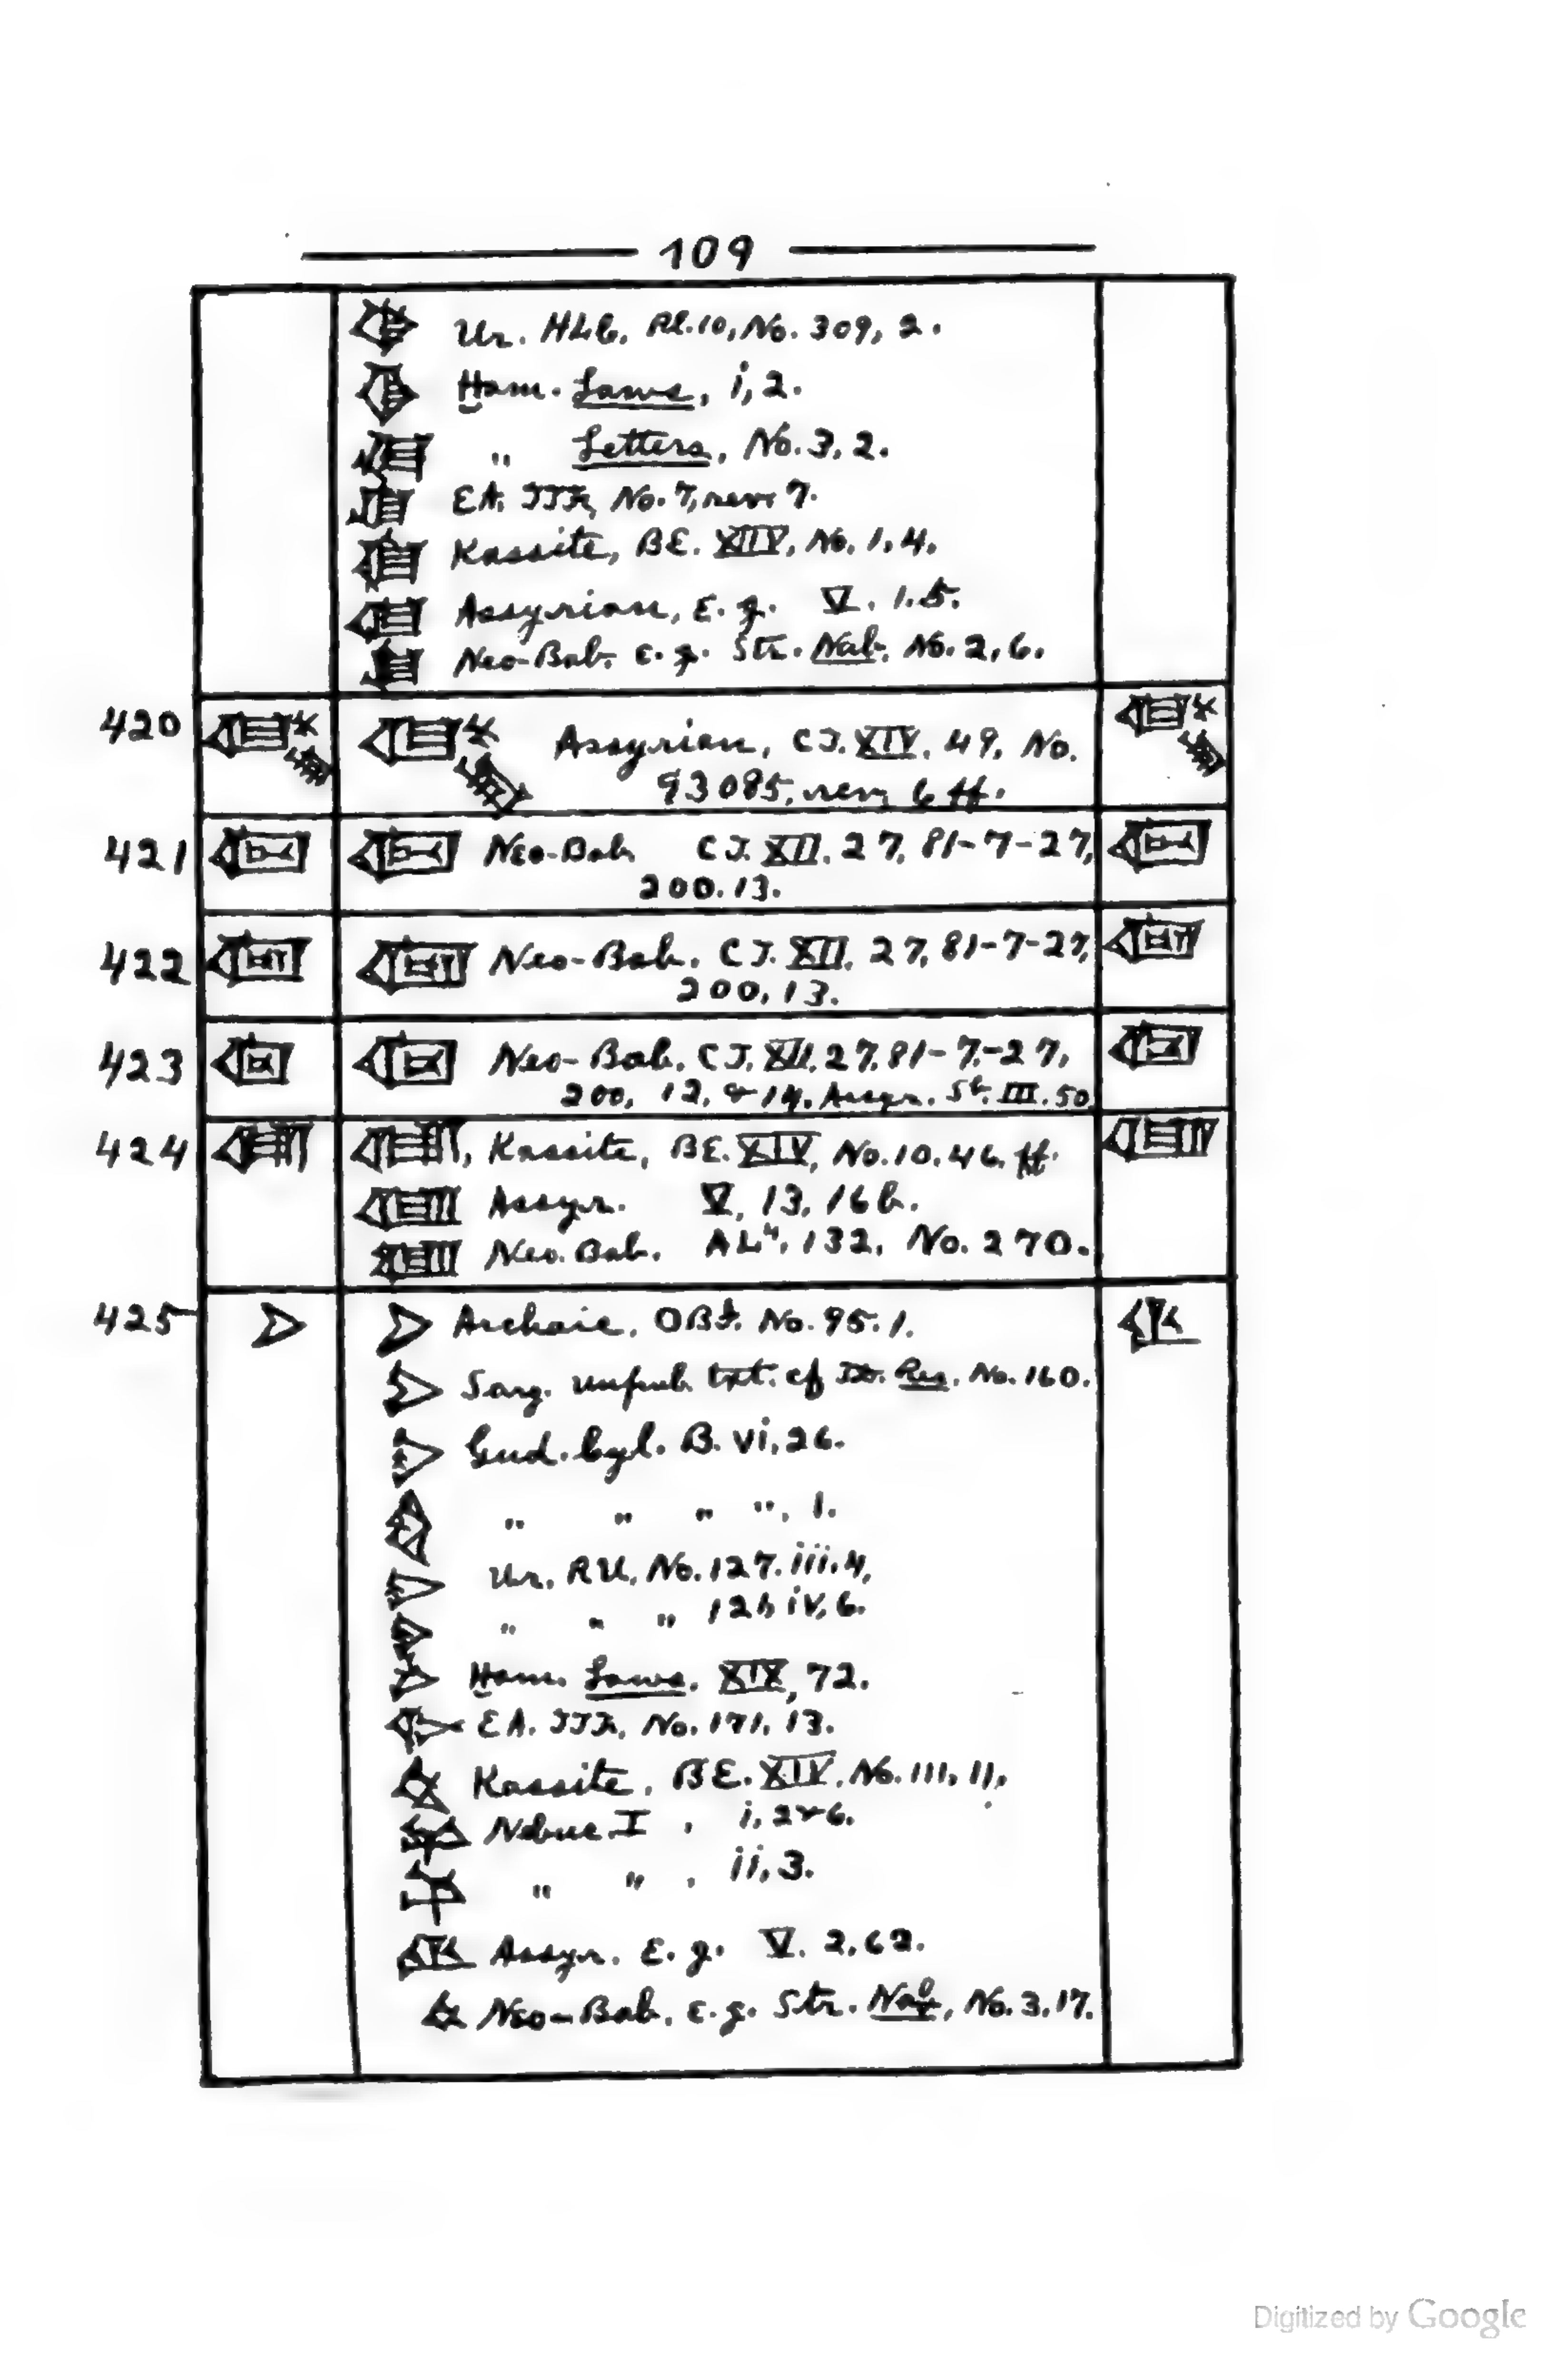 109
Ur. HLC, Pl. 10, No. 309, 2.
Ḫam. Laws, i, 2.
" Letters, No. 3, 2.
EA. No. 7, rev. 7.
Kassite, BE. XIV, No. 1, 4.
Assyrian, E. g. V. 1.5.
Neo-Bab. e. g. Str. Nab. No. 2, 6.
420 Assyrian, CT. XIV. 49, No.
93085, rev. 6 ff.
421 Neo-Bab. CT. XII. 27, 81-7-27,
200.13.
422 Neo-Bab. CT. XII. 27, 81-7-27,
200, 13.
423 Neo-Bab. CT. XII. 27, 81-7-27,
200, 12, & 14. Assyr. Sb. III. 50
424 Kassite, BE. XIV, No. 10. 46. ff.
Assyr. V, 13, 16 b.
Neo. Bab. AL⁴, 132, No. 270.
425 Archaic, OBI. No. 95. 1.
Sarg. unpub. txt. cf Rec. No. 160.
Gud. Cyl. B. vi, 26.
" " " ", 1.
Ur. RU, No. 127. iii. 4,
" " " iv, 6.
Ḫam. Laws. XIX, 72.
EA. No. 171, 13.
Kassite, BE. XIV. No. 111, 11,
Nebuc. I , i, 2 & 6.
" " , ii, 3.
Assyr. E. g. V. 2, 62.
Neo-Bab. e. g. Str. No. 3, 17.
Digitized by Google